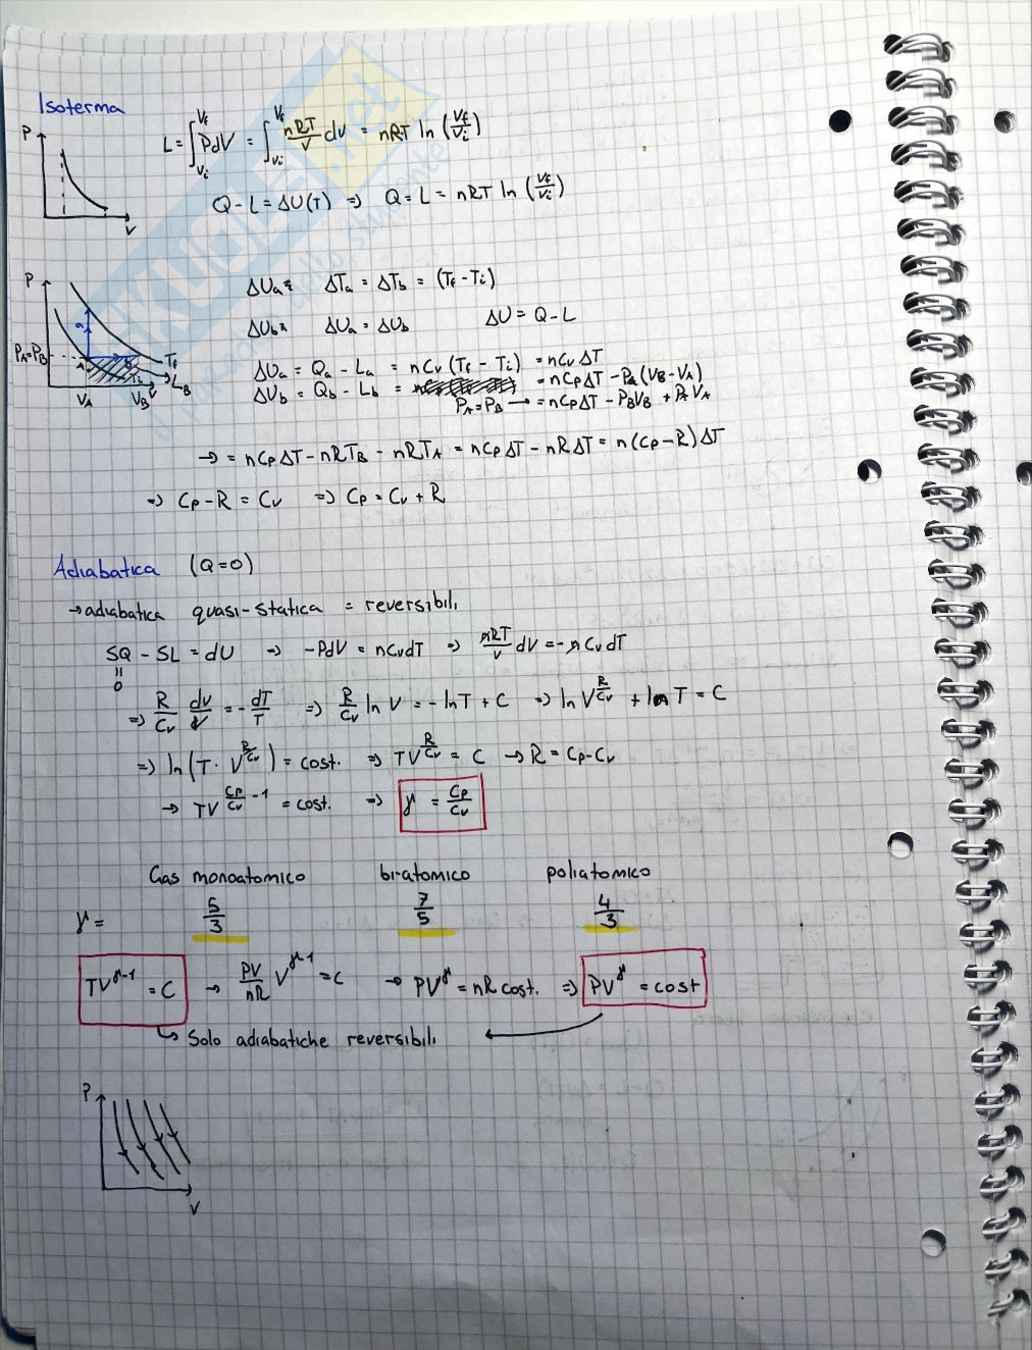 Isoterma
P
L = ∫_{Vi}^{Vf} PdV = ∫_{Vi}^{Vf} nRT/V dV = nRT ln (Vf/Vi)
Q - L = ΔU(T) => Q = L = nRT ln (Vf/Vi)
V
P
ΔUa = ΔTa = ΔTb = (Tf - Ti)
ΔUb = ΔUa = ΔUb ΔU = Q - L
PA=PB a A B Tf LB
VA VB V
ΔUa = Qa - La = nCv (Tf - Ti) = nCv ΔT
ΔUb = Qb - Lb = n = nCpΔT - PA(VB - VA)
PA = PB → = nCpΔT - PBVB + PAVA
→ = nCpΔT - nRTB - nRTA = nCpΔT - nRΔT = n(Cp - R)ΔT
=> Cp - R = Cv => Cp = Cv + R
Adiabatica (Q=0)
→ adiabatica quasi-statica = reversibili
SQ - SL = dU → -PdV = nCvdT => nRT/V dV = -nCvdT
0
=> R/Cv dV/V = -dT/T => R/Cv ln V = -lnT + C => ln V^{R/Cv} + ln T = C
=> ln(T · V^{R/Cv}) = cost. => TV^{R/Cv} = C → R = Cp-Cv
→ TV^{Cp/Cv -1} = cost. => γ = Cp/Cv
Gas monoatomico biatomico poliatomico
γ = 5/3 7/5 4/3
TV^{γ-1} = C → PV/nR V^{γ-1} = C → PV^γ = nR cost. => PV^γ = cost
↳ Solo adiabatiche reversibili
P
V